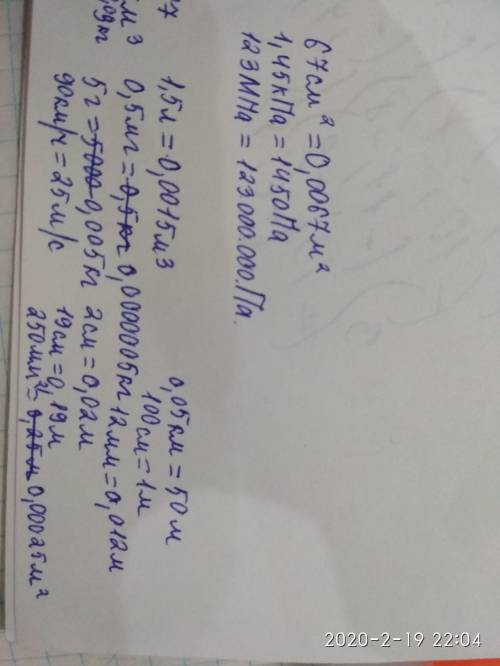 67см² = 0,0067м²
1,45кПа = 1450Па
123МПа = 123.000.000.Па.
1,5л = 0,0015м3
0,5мг = 0,5кг 0,0000005кг
5г = 5000 0,005кг
90км/ч = 25м/с
0,05км = 50м
100см = 1м
12мм = 0,012м
2см = 0,02м
19см = 0,19м
250мм² = 0,25м 0,00025м²
м3
,09кг
2020-2-19 22:04